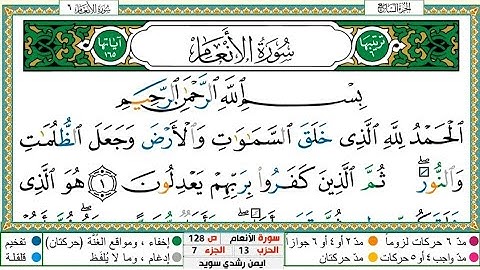 الجزء السابع
سورة الأنعام ٦
ترتيبها ٦
سُورَةُ الأَنْعَام
آياتها ١٦٥
بِسْمِ ٱللَّهِ ٱلرَّحْمَٰنِ ٱلرَّحِيمِ
ٱلْحَمْدُ لِلَّهِ ٱلَّذِى خَلَقَ ٱلسَّمَٰوَٰتِ وَٱلْأَرْضَ وَجَعَلَ ٱلظُّلُمَٰتِ
وَٱلنُّورَ ۖ ثُمَّ ٱلَّذِينَ كَفَرُوا۟ بِرَبِّهِمْ يَعْدِلُونَ ١ هُوَ ٱلَّذِى
مدّ ٦ حركات لزوماً مدّ ٢ أو ٤ أو ٦ جوازاً
مدّ واجب ٤ أو ٥ حركات مدّ حركتان
سورة الأنعام ص 128
الحزب 13 الجزء 7
أيمن رشدي سويد
إخفاء، ومواقع الغُنَّة (حركتان) تفخيم
إدغام، وما لا يُلفَظ قلقلة